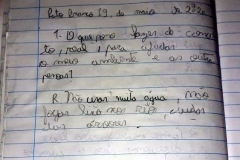 Pato Branco 19 de maio de 2020
1. O que posso fazer de concre
to, real, para ajudar
o meio ambiente e as outras
pessoas?
R. Não usar muita água, não
jogar lixo nos rios, cuidar
das árvores.